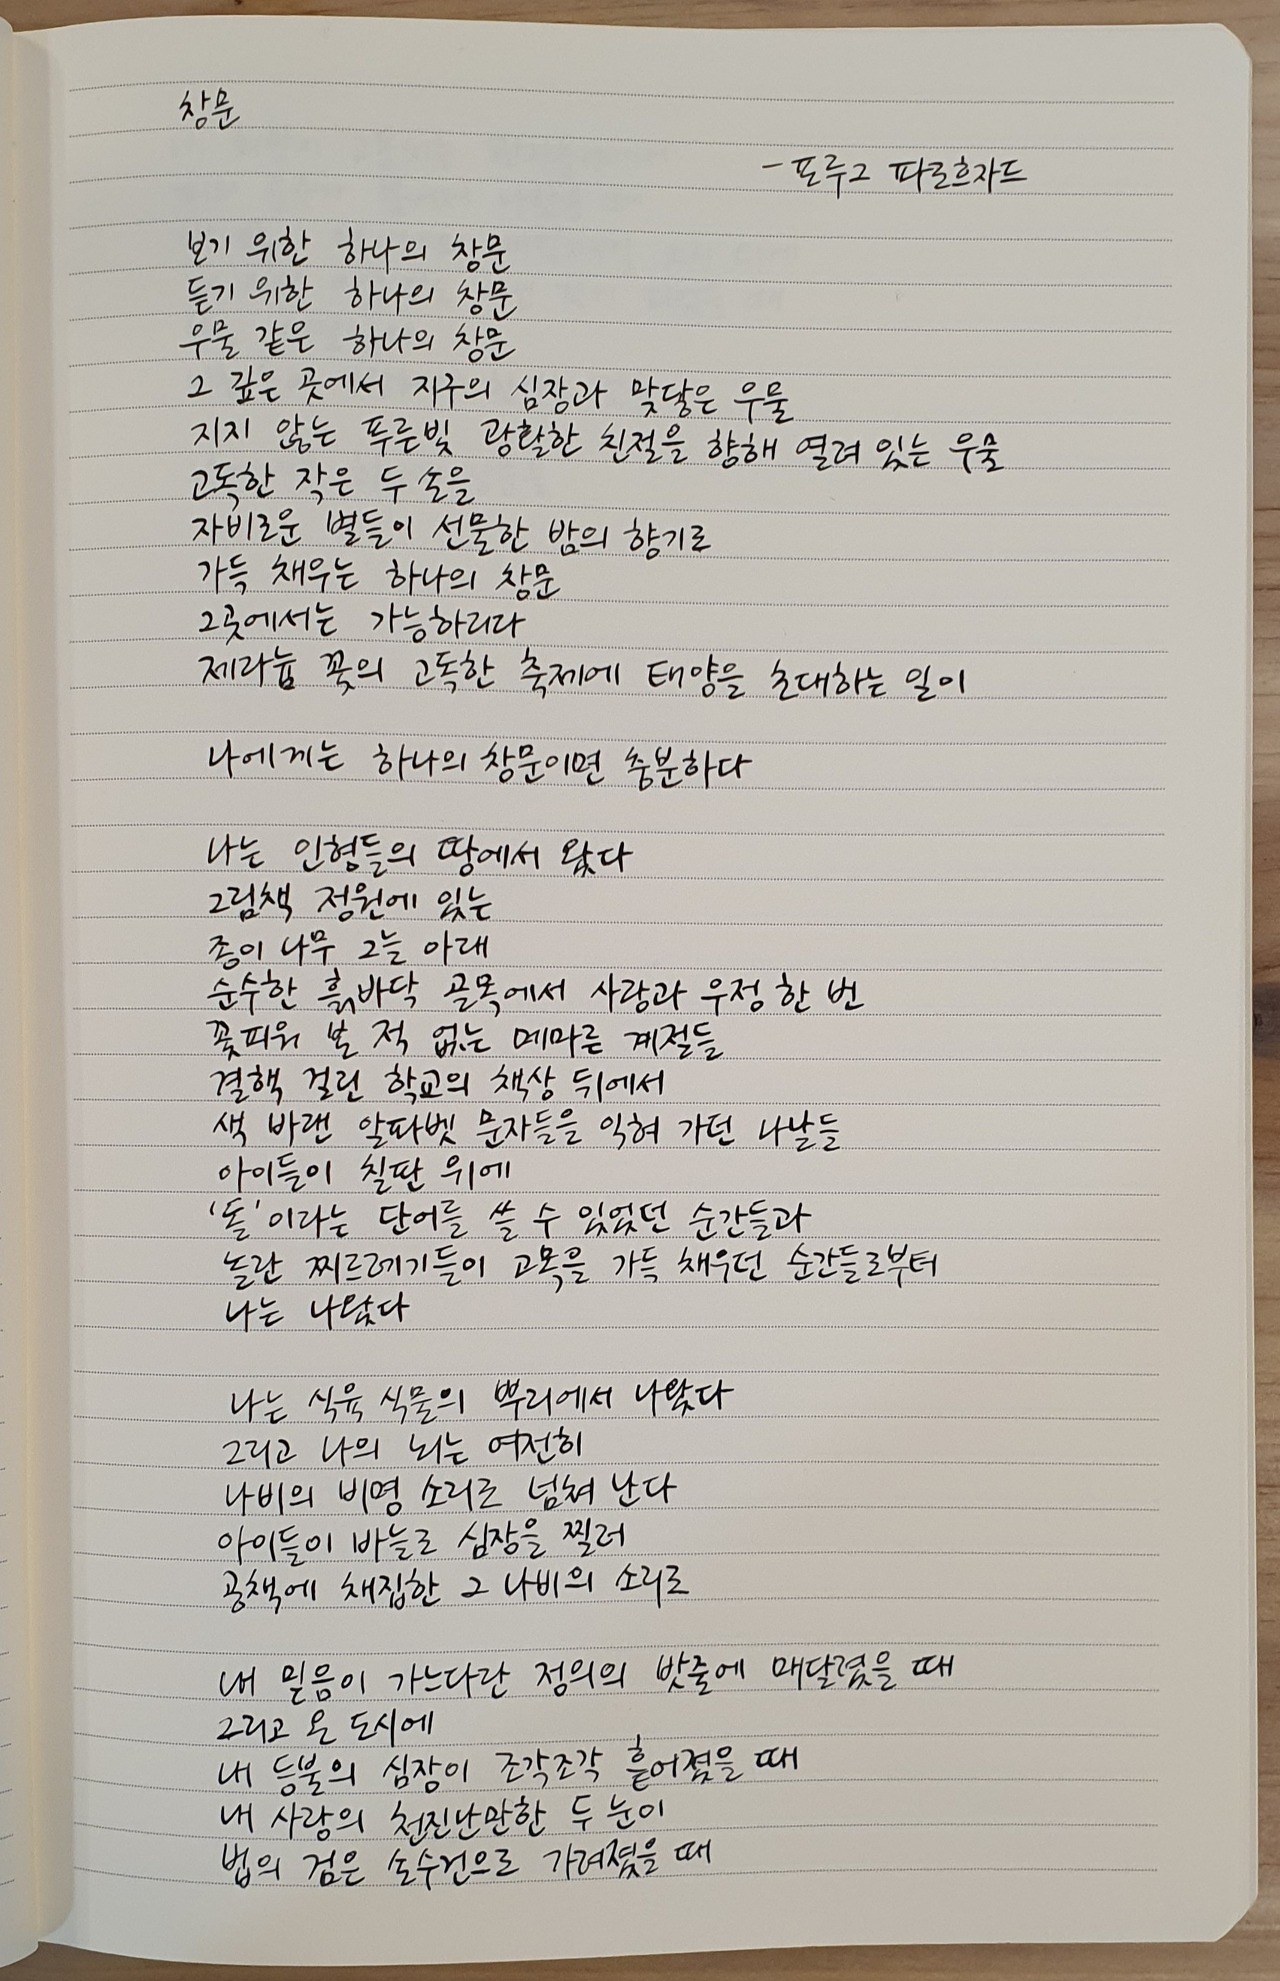 창문
- 포루그 파로흐자드
보기 위한 하나의 창문
듣기 위한 하나의 창문
우물 같은 하나의 창문
그 깊은 곳에서 지구의 심장과 맞닿은 우물
지지 않는 푸른빛 광활한 친절을 향해 열려 있는 우물
고독한 작은 두 손을
자비로운 별들이 선물한 밤의 향기로
가득 채우는 하나의 창문
그곳에서는 가능하리다
제라늄 꽃의 고독한 축제에 태양을 초대하는 일이
나에게는 하나의 창문이면 충분하다
나는 인형들의 땅에서 왔다
그림책 정원에 있는
종이 나무 그늘 아래
순수한 흙바닥 골목에서 사랑과 우정 한 번
꽃피워 본 적 없는 메마른 계절들
결핵 걸린 학교의 책상 뒤에서
색 바랜 알파벳 문자들을 익혀 가던 나날들
아이들이 칠판 위에
'돌'이라는 단어를 쓸 수 있었던 순간들과
놀란 찌르레기들이 고목을 가득 채우던 순간들로부터
나는 나왔다
나는 식육 식물의 뿌리에서 나왔다
그리고 나의 뇌는 여전히
나비의 비명 소리로 넘쳐 난다
아이들이 바늘로 심장을 찔러
공책에 채집한 그 나비의 소리로
내 믿음이 가느다란 정의의 밧줄에 매달렸을 때
그리고 온 도시에
내 등불의 심장이 조각조각 흩어졌을 때
내 사랑의 천진난만한 두 눈이
법의 검은 손수건으로 가려졌을 때